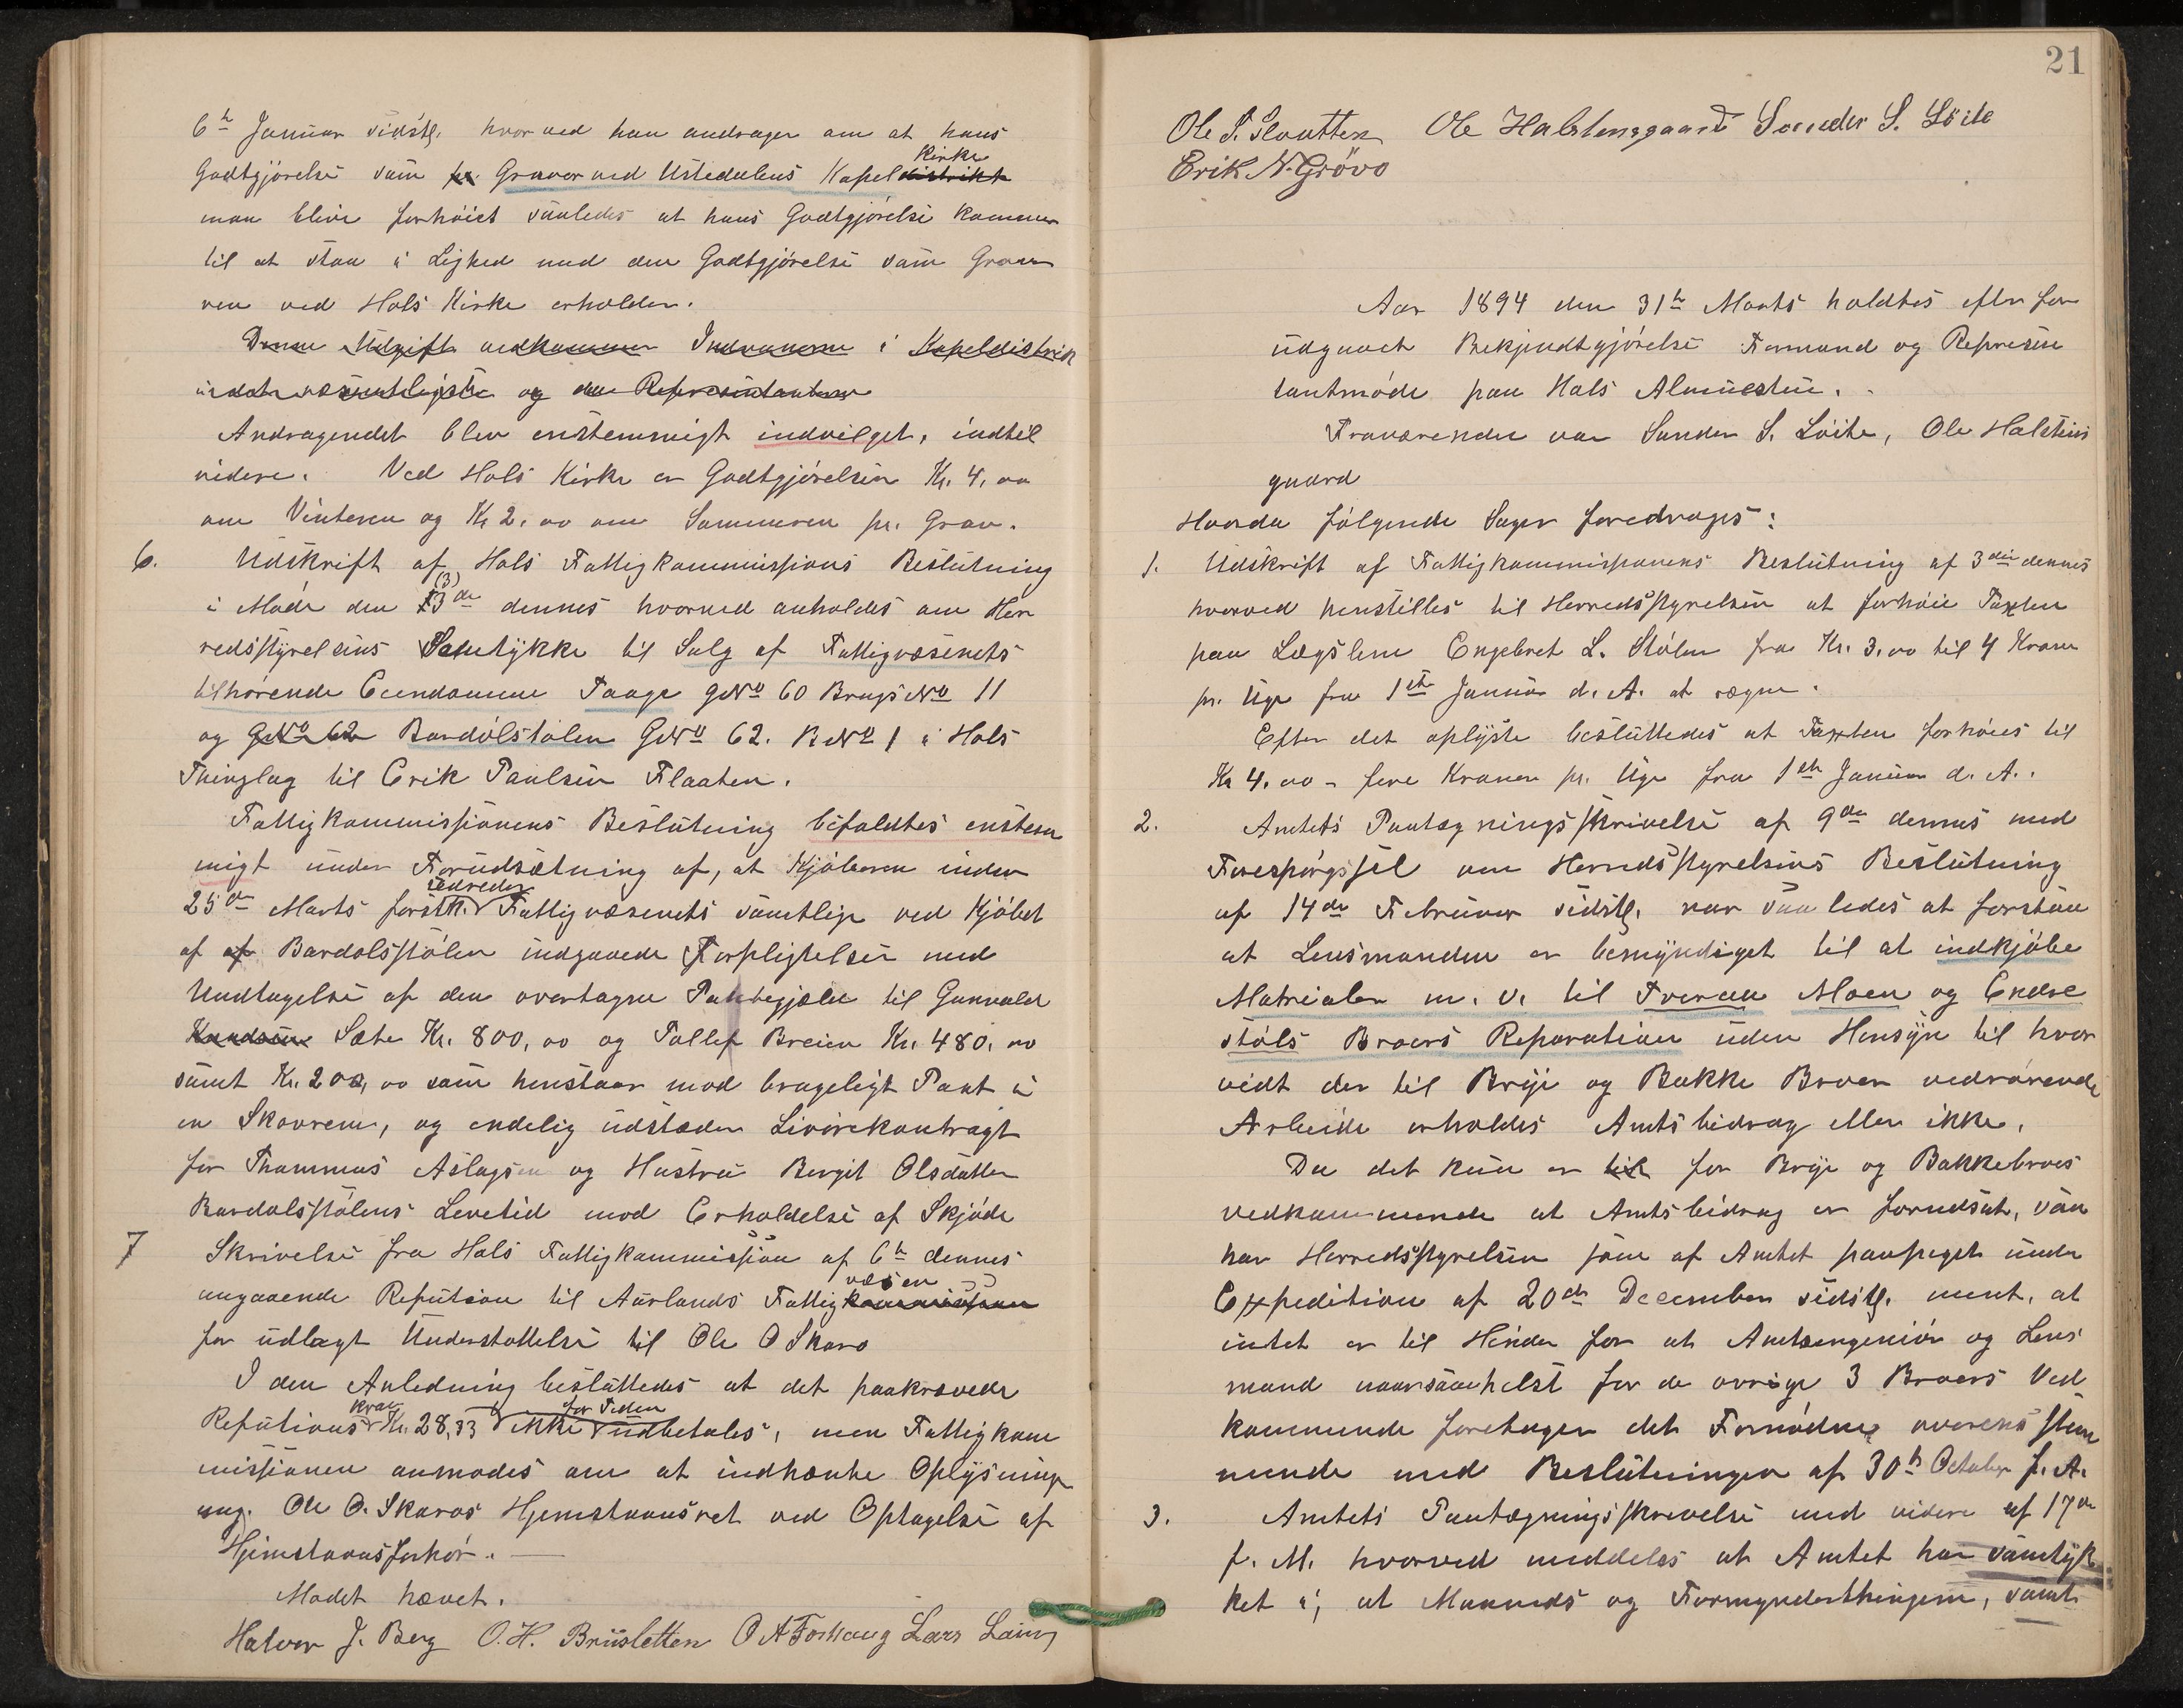 6te Januar sidstl. hvorved han andrager om at hans
Kirke
Godtgjörelse som Graver ved Ustedalens Kapeldistrikt
maa blive forhöiet saaledes at hans Godtgjörelse kommer
til at staa i Lighed med den Godtgjörelse som Grave
ren ved Hols Kirke erholder.
Denne Udgift vedkommer Indvaanerne i Kapeldistrik
og den Repræsentanterne
Andragendet blev enstemmigt indvilget, indtil
videre. Ved Hols Kirke er Godtgjörelsen Kr. 4,00
om Vinteren og Kr 2,00 om Sommeren pr. Grav.
6. Udskrift af Hols Fattigkommissions Beslutning
(3)
i Möde den 13de dennes hvorved anholdes om Her
redsstyrelsens Samtykke til Salg af Fattigvæsenets
tilhörende Eiendomme Taage GNo 60 Brugs No 11
og GNo 62 Bardölstölen GNo 62. BNo 1 i Hols
Thinglag til Erik Paulsen Flaaten.
Fattigkommissionens Beslutning bifaldtes enstem
migt under Forudsætning af, at Kjöberen inden
udreder
25de Marts förstk. Fattigvæsenets samtlige ved Kjöbet
af af Bardolsstölen indgaaede Forpligtelser med
Undtagelse af den overtagne Pantegjæld til Gunvald
Knudsen Sæte Kr. 800,00 og Tollef Breien Kr. 480,00
samt Kr. 200,00 som henstaar mod brugeligt Pant i
en Skovrem, og endelig udsteder Livörekontragt
for Thommas Aslagsen og Hustru Bergit Olsdatter
Bardolsstölens Levetid mod Erholdelse af Skjöde
7 Skrivelse fra Hols Fattigkommission af 6te dennes
væsen
angaaende Refusion til Aurlands Fattigkommission
for udlagt Understöttelse til Ole O Skaro
I den Anledning besluttedes at det paakrævede
krav for Tiden
Refusions Kr. 28,33 ikke udbetales, men Fattigkom
missionen anmodes om at indhente Oplysning
ang. Ole O. Skaros Hjemstavnsret ved Optagelse af
Hjemstavnsforhör.
Mödet hævet.
Halvor J. Berg O. H. Brusletten O A Forhaug Lars
21
Ole S. Slaatten Ole Halstensgaard Sander S. Löite
Erik N. Grövo
Aar 1894 den 31te Marts holdtes efter for
udgaaet Bekjendtgjörelse Formand og Repræsen
tantmöde paa Hols Almuestue.
Fraværende var Sander S. Löite, Ole Halstens
gaard
Hvorda fölgende Sager foredroges:
1. Udskrift af Fattigkommissionens Beslutning af 3die dennes
hvorved henstilles til Herredsstyrelsen at forhöie Taxten
paa Lægslem Engebret L. Stölen fra Kr. 3,00 til 4 Kroner
pr. Uge fra 1ste Januar d. A. at regne.
Efter det oplyste besluttedes at Taxten forhöies til
Kr 4,00 - fire Kroner pr. Uge fra 1ste Januar d. A.
2. Amtets Paategningsskrivelse af 9de dennes med
Forespörgsel om Herredsstyrelsens Beslutning
af 14de Februar sidstl. var saaledes at forstaa
at Lensmanden er bemyndiget til at indkjöbe
Materialer m. v. til Moen og Endre
stöls Broers Reparation uden Hensyn til hvor
vidt der til Brye og Bakke Broer vedrörende
Arbeide erholdes Amtsbidrag eller ikke.
Da det kun er til for Brye og Bakkebroes
vedkommende at Amtsbidrag er forudsat, saa
har Herredsstyrelsen som af Amtet paapeget under
Expedition af 20de December sidstl. ment, at
intet er til Hinder for at Amtsingeniör og Lens
mand naarsomhelst for de övrige 3 Broers Ved
kommende foretager det Fornödne overensstem
mende med Beslutningen af 30te October f. A.
3. Amtets Paategningsskrivelse med videre af 17de
f. M. hvorved meddeles at Amtet har samtyk
ket i, at Maaneds og Formynderthingene, samt